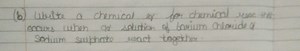 (b) Write a chemical eq for chemical reac
occurs when solution of barium chloride &
Sodium sulphate react together.